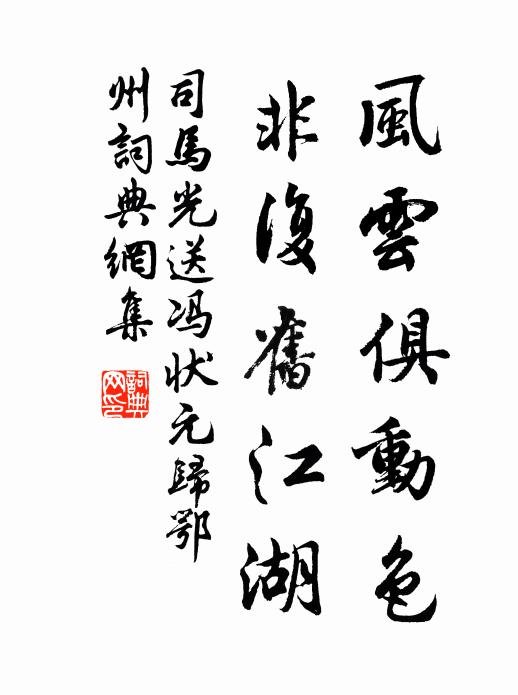 風雲俱動色
非復舊江湖
司馬光送冯狀元歸鄂
州詞典網集
詞典
网印